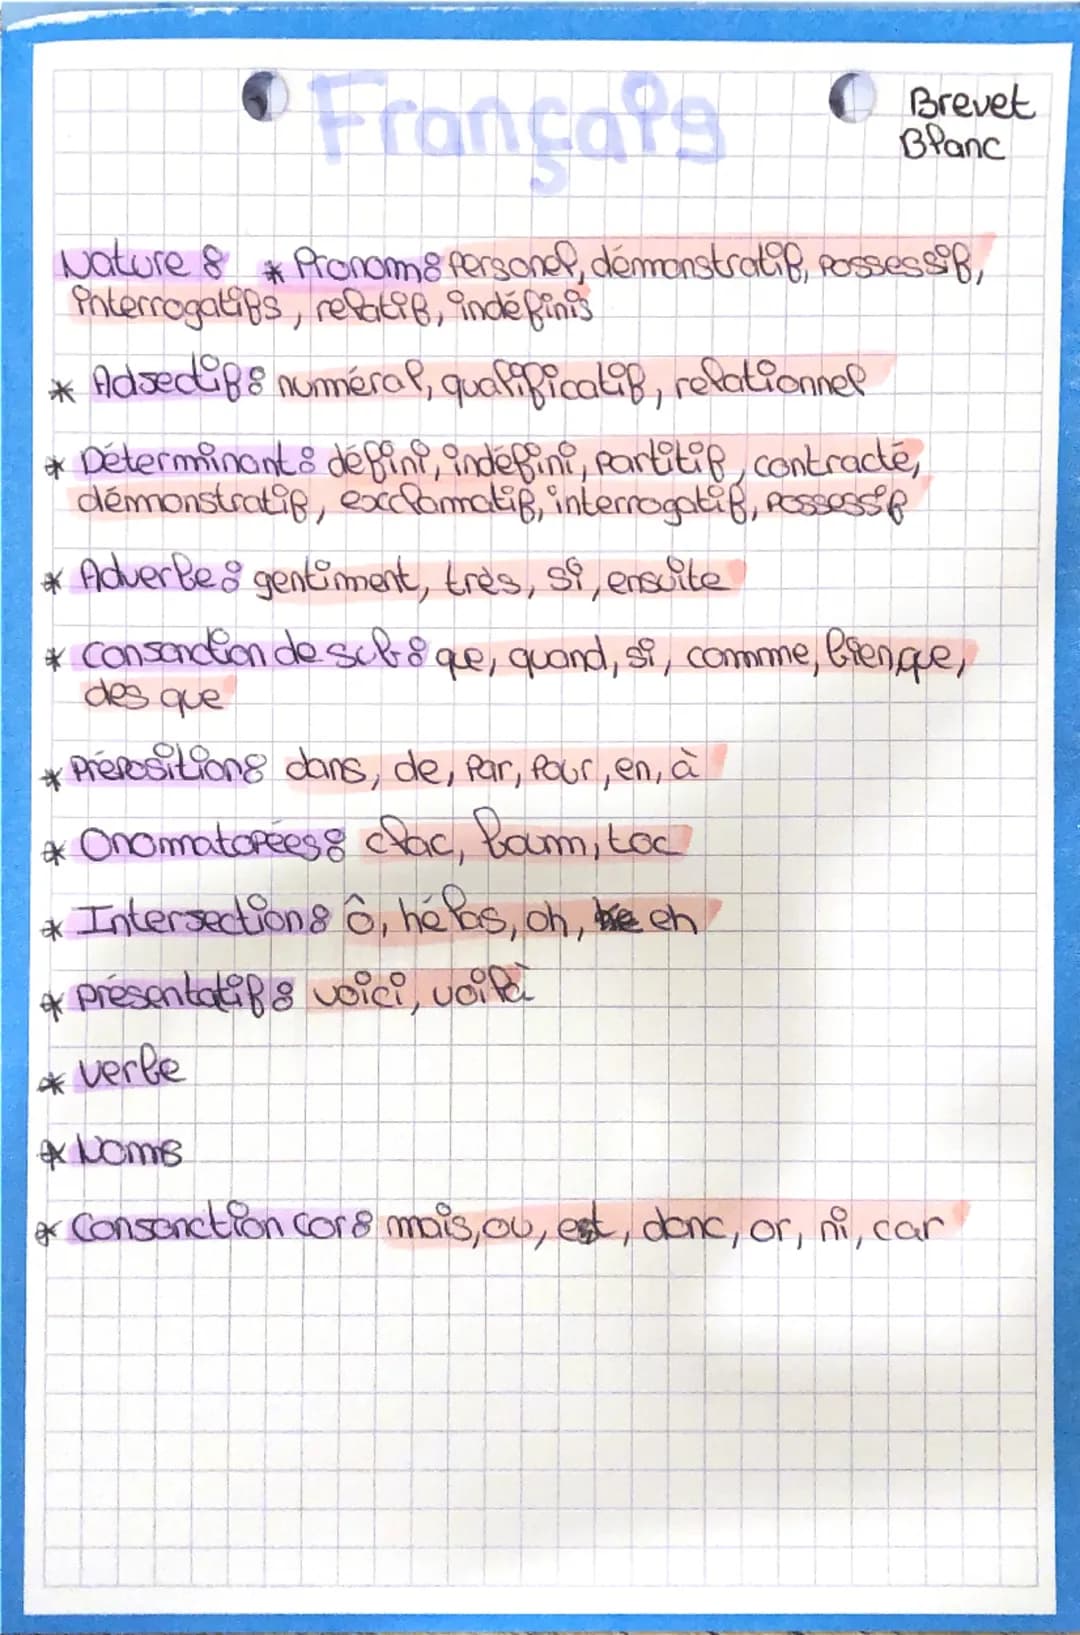 Français
Brevet
Blanc
Nature : * Pronom : personel, démonstratif, possessif,
interrogatifs, relatif, indéfinis
* Adjectif : numéral, qualificatif, relationnel
* Déterminant : défini, indéfini, partitif, contracté,
démonstratif, exclammatif, interrogatif, possessif
* Adverbe : gentiment, très, si, ensuite
* Conjonction de sub : que, quand, si, comme, bien que,
des que
* Préposition : dans, de, par, pour, en, à
* Onomatopées : clac, bam, toc
* Interjection : ô, hélas, oh, eh
* présentatif : voici, voilà
* verbe
* Noms
* Conjonction cor : mais, ou, est, donc, or, ni, car